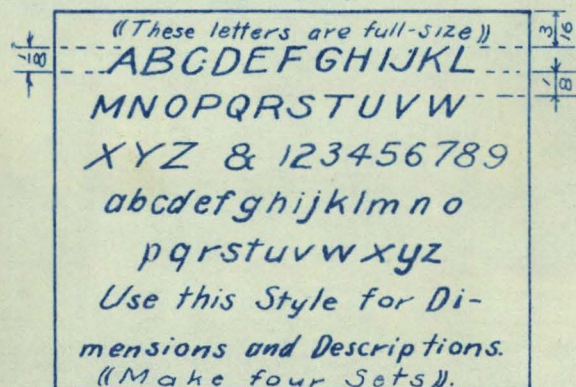 ((These letters are full-size))
ABCDEFGHIJKL
MNOPQRSTUVW
XYZ & 123456789
abcdefghijklmno
pqrstuvwxyz
Use this Style for Di-
mensions and Descriptions.
((Make four Sets)).
1/8
3/16
1/8